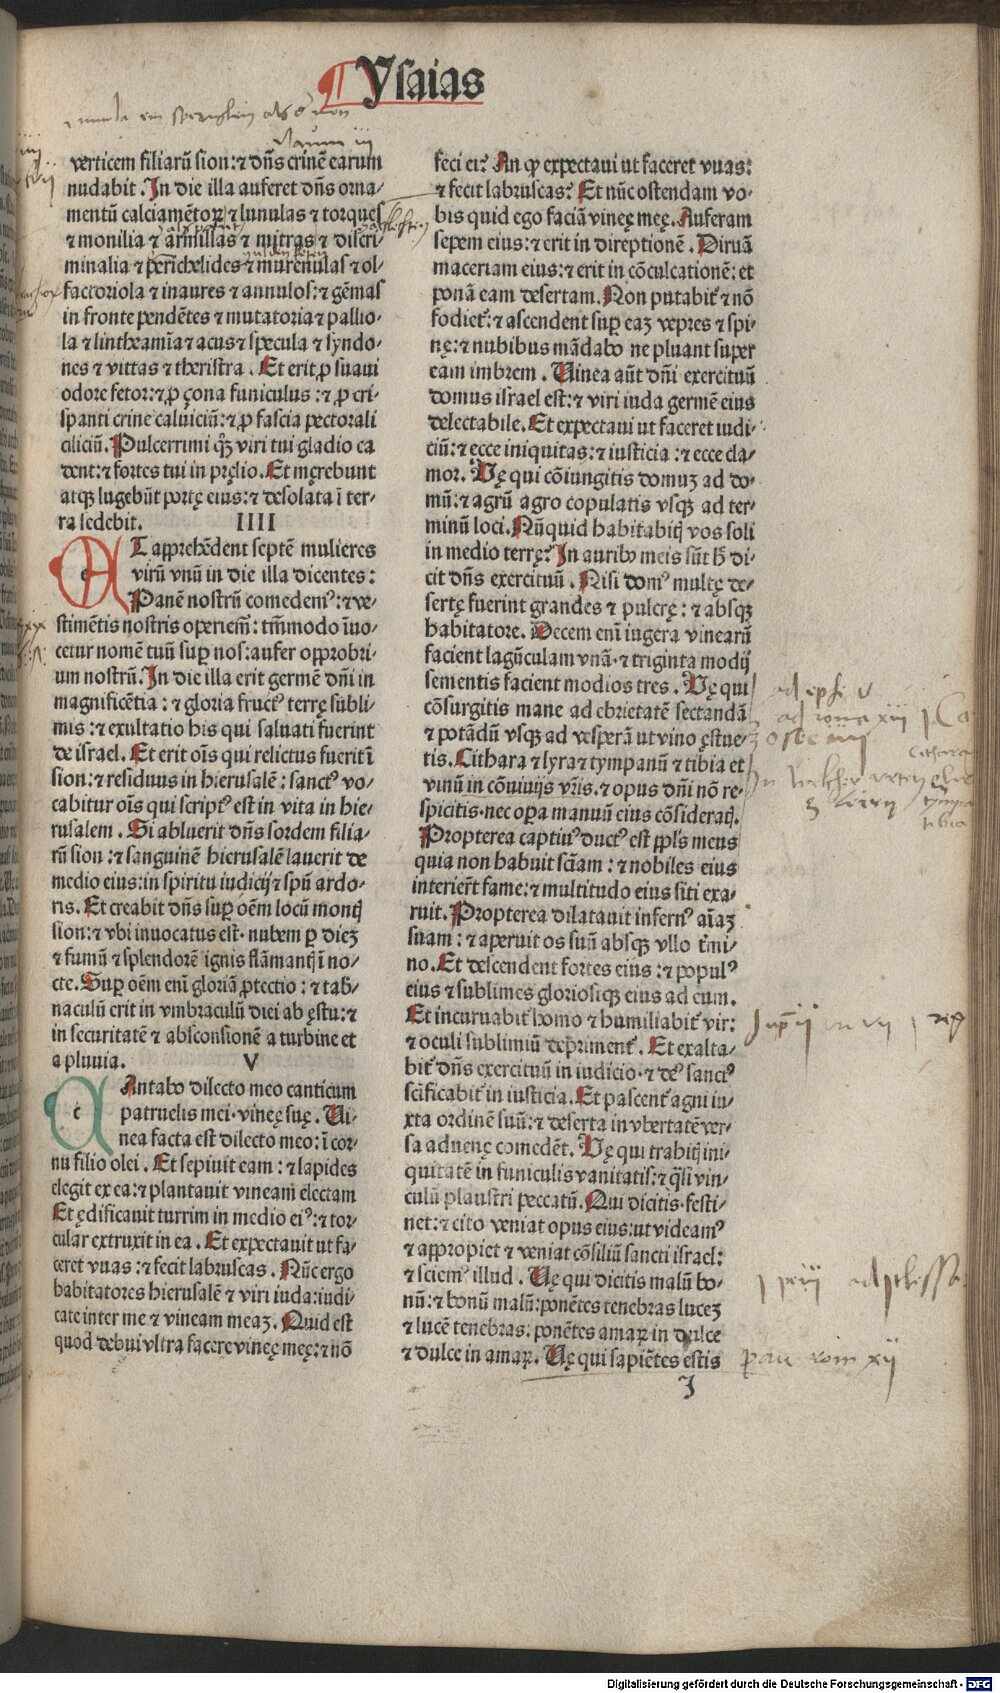 Ysaias
verticem filiarũ sion: ⁊ dñs crinẽ earum
nudabit . In die illa auferet dñs orna/
mentũ calciamẽtoꝝ ⁊ lunulas ⁊ torques
⁊ monilia ⁊ armillas ⁊ mitras ⁊ discri/
minalia ⁊ perichelides ⁊ murenulas ⁊ ol/
factoriola ⁊ inaures ⁊ annulos: ⁊ gẽmas
in fronte pendẽtes ⁊ mutatoria ⁊ pallio/
la ⁊ lintheamĩa ⁊ acus ⁊ specula ⁊ syndo/
nes ⁊ vittas ⁊ theristra . Et erit ꝓ suaui
odore fetor: ⁊ ꝓ çona funiculus : ⁊ ꝓ cri/
spanti crine caluiciũ: ⁊ ꝓ fascia pectorali
ciliciũ. Pulcerrimi qꝫ viri tui gladio ca
dent: ⁊ fortes tui in pręlio. Et męrebunt
atqꝫ lugebũt portę eius: ⁊ desolata ĩ ter/
ra sedebit. IIII
ET apprehẽdent septẽ mulieres
virũ vnũ in die illa dicentes:
Panẽ nostrũ comedemꝰ: ⁊ ve/
stimẽtis nostris operiem̃: tm̃modo ĩuo/
cetur nomẽ tuũ suꝑ nos: aufer opprobri/
um nostrũ. In die illa erit germẽ dñi in
magnificẽtia : ⁊ gloria fructꝰ terrę subli/
mis: ⁊ exultatio his qui saluati fuerint
de israel. Et erit oĩs qui relictus fuerit ĩ
sion: ⁊ residuus in hierusalẽ: sanctꝰ vo/
cabitur oĩs qui scriptꝰ est in vita in hie/
rusalem . Si abluerit dñs sordem filia/
rũ sion : ⁊ sanguinẽ hierusalẽ lauerit de
medio eius: in spiritu iudicij ⁊ spũ ardo/
ris. Et creabit dñs suꝑ oẽm locũ montꝭ
sion: ⁊ vbi inuocatus est. nubem ꝑ dieꝫ
⁊ fumũ ⁊ splendorẽ ignis flãmantꝭ ĩ no/
cte. Suꝑ oẽm enĩ gloriã ꝓtectio : ⁊ tab̃/
naculũ erit in vmbraculũ diei ab ęstu: ⁊
in securitatẽ ⁊ absconsionẽ a turbine et
a pluuia. V
cAntabo dilecto meo canticum
patruelis mei. vineę suę . Vi/
nea facta est dilecto meo: ĩ cor/
nu filio olei . Et sepiuit eam : ⁊ lapides
elegit ex ea: ⁊ plantauit vineam electam
Et ędificauit turrim in medio eiꝰ: ⁊ tor/
cular extruxit in ea . Et expectauit ut fa/
ceret vuas: ⁊ fecit labruscas . Nũc ergo
habitatores hierusalẽ ⁊ viri iuda: iudi/
cate inter me ⁊ vineam meaꝫ . Quid est
quod debui vltra facere vineę męę: ⁊ nõ
feci ei? An ꝙ expectaui ut faceret vuas:
⁊ fecit labruscas? Et nũc ostendam vo/
bis quid ego faciã vineę meę. Auferam
sepem eius: ⁊ erit in direptionẽ . Diruã
maceriam eius: ⁊ erit in cõculcationẽ: et
ponã eam desertam. Non putabit̃ ⁊ nõ
fodiet̃: ⁊ ascendent suꝑ eaꝫ vepres ⁊ spi/
nę: ⁊ nubibus mãdabo ne pluant super
eam imbrem . Vinea aũt dñi exercituũ
domus israel est: ⁊ viri iuda germẽ eius
delectabile. Et expectaui ut faceret iudi/
ciũ: ⁊ ecce iniquitas: ⁊ iusticia : ⁊ ecce cla/
mor. Vę qui cõiungitis domuꝫ ad do/
mũ: ⁊ agrũ agro copulatis vsqꝫ ad ter/
minũ loci. Nũquid habitabitꝭ vos soli
in medio terrę? In auribꝰ meis sũt h̃ di/
cit dñs exercituũ . Nisi domꝰ multę de/
sertę fuerint grandes ⁊ pulcrę: ⁊ absqꝫ
habitatore. Decem enĩ iugera vinearũ
facient lagũculam vnã. ⁊ triginta modij
sementis facient modios tres . Vę qui
cõsurgitis mane ad ebrietatẽ sectandã
⁊ potãdũ vsqꝫ ad vesperã ut vino ęstue/
tis. Cithara ⁊ lyra ⁊ tympanũ ⁊ tibia et
vinũ in cõuiuijs vr̃is. ⁊ opus dñi nõ re/
spicitis. nec oꝑa manuũ eius cõsideratꝭ.
Propterea captiuꝰ ductꝰ est ppl̃s meus
quia non habuit sciam : ⁊ nobiles eius
interier̃t fame: ⁊ multitudo eius siti exa/
ruit. Propterea dilatauit infernꝰ aĩaꝫ
suam : ⁊ aperuit os suũ absqꝫ vllo t̃mi/
no. Et descendent fortes eius : ⁊ populꝰ
eius ⁊ sublimes gloriosiqꝫ eius ad eum.
Et incuruabit̃ homo ⁊ humiliabit̃ vir:
⁊ oculi sublimiũ deprimentꝰ. Et exalta/
bit̃ dñs exercituũ in iudicio. ⁊ deꝰ sanctꝰ
scĩficabit̃ in iusticia. Et pascent̃ agni iu/
xta ordinẽ suũ: ⁊ deserta in vbertatẽ ver/
sa aduenę comedẽt. Vę qui trahitꝭ ini/
quitatẽ in funiculis vanitatis: ⁊ q̃si vin/
culũ plaustri peccatũ. Qui dicitis. festi/
net: ⁊ cito veniat opus eius: ut videamꝰ
⁊ appropiet ⁊ veniat cõsiliũ sancti israel:
⁊ sciemꝰ illud . Vę qui dicitis malũ bo/
nũ: ⁊ bonũ malũ: ponẽtes tenebras luceꝫ
⁊ lucẽ tenebras: ponẽtes amaꝝ in dulce
⁊ dulce in amaꝝ. Vę qui sapiẽtes estis
J
ad ephe v
Digitalisierung gefördert durch die Deutsche Forschungsgemeinschaft - DFG